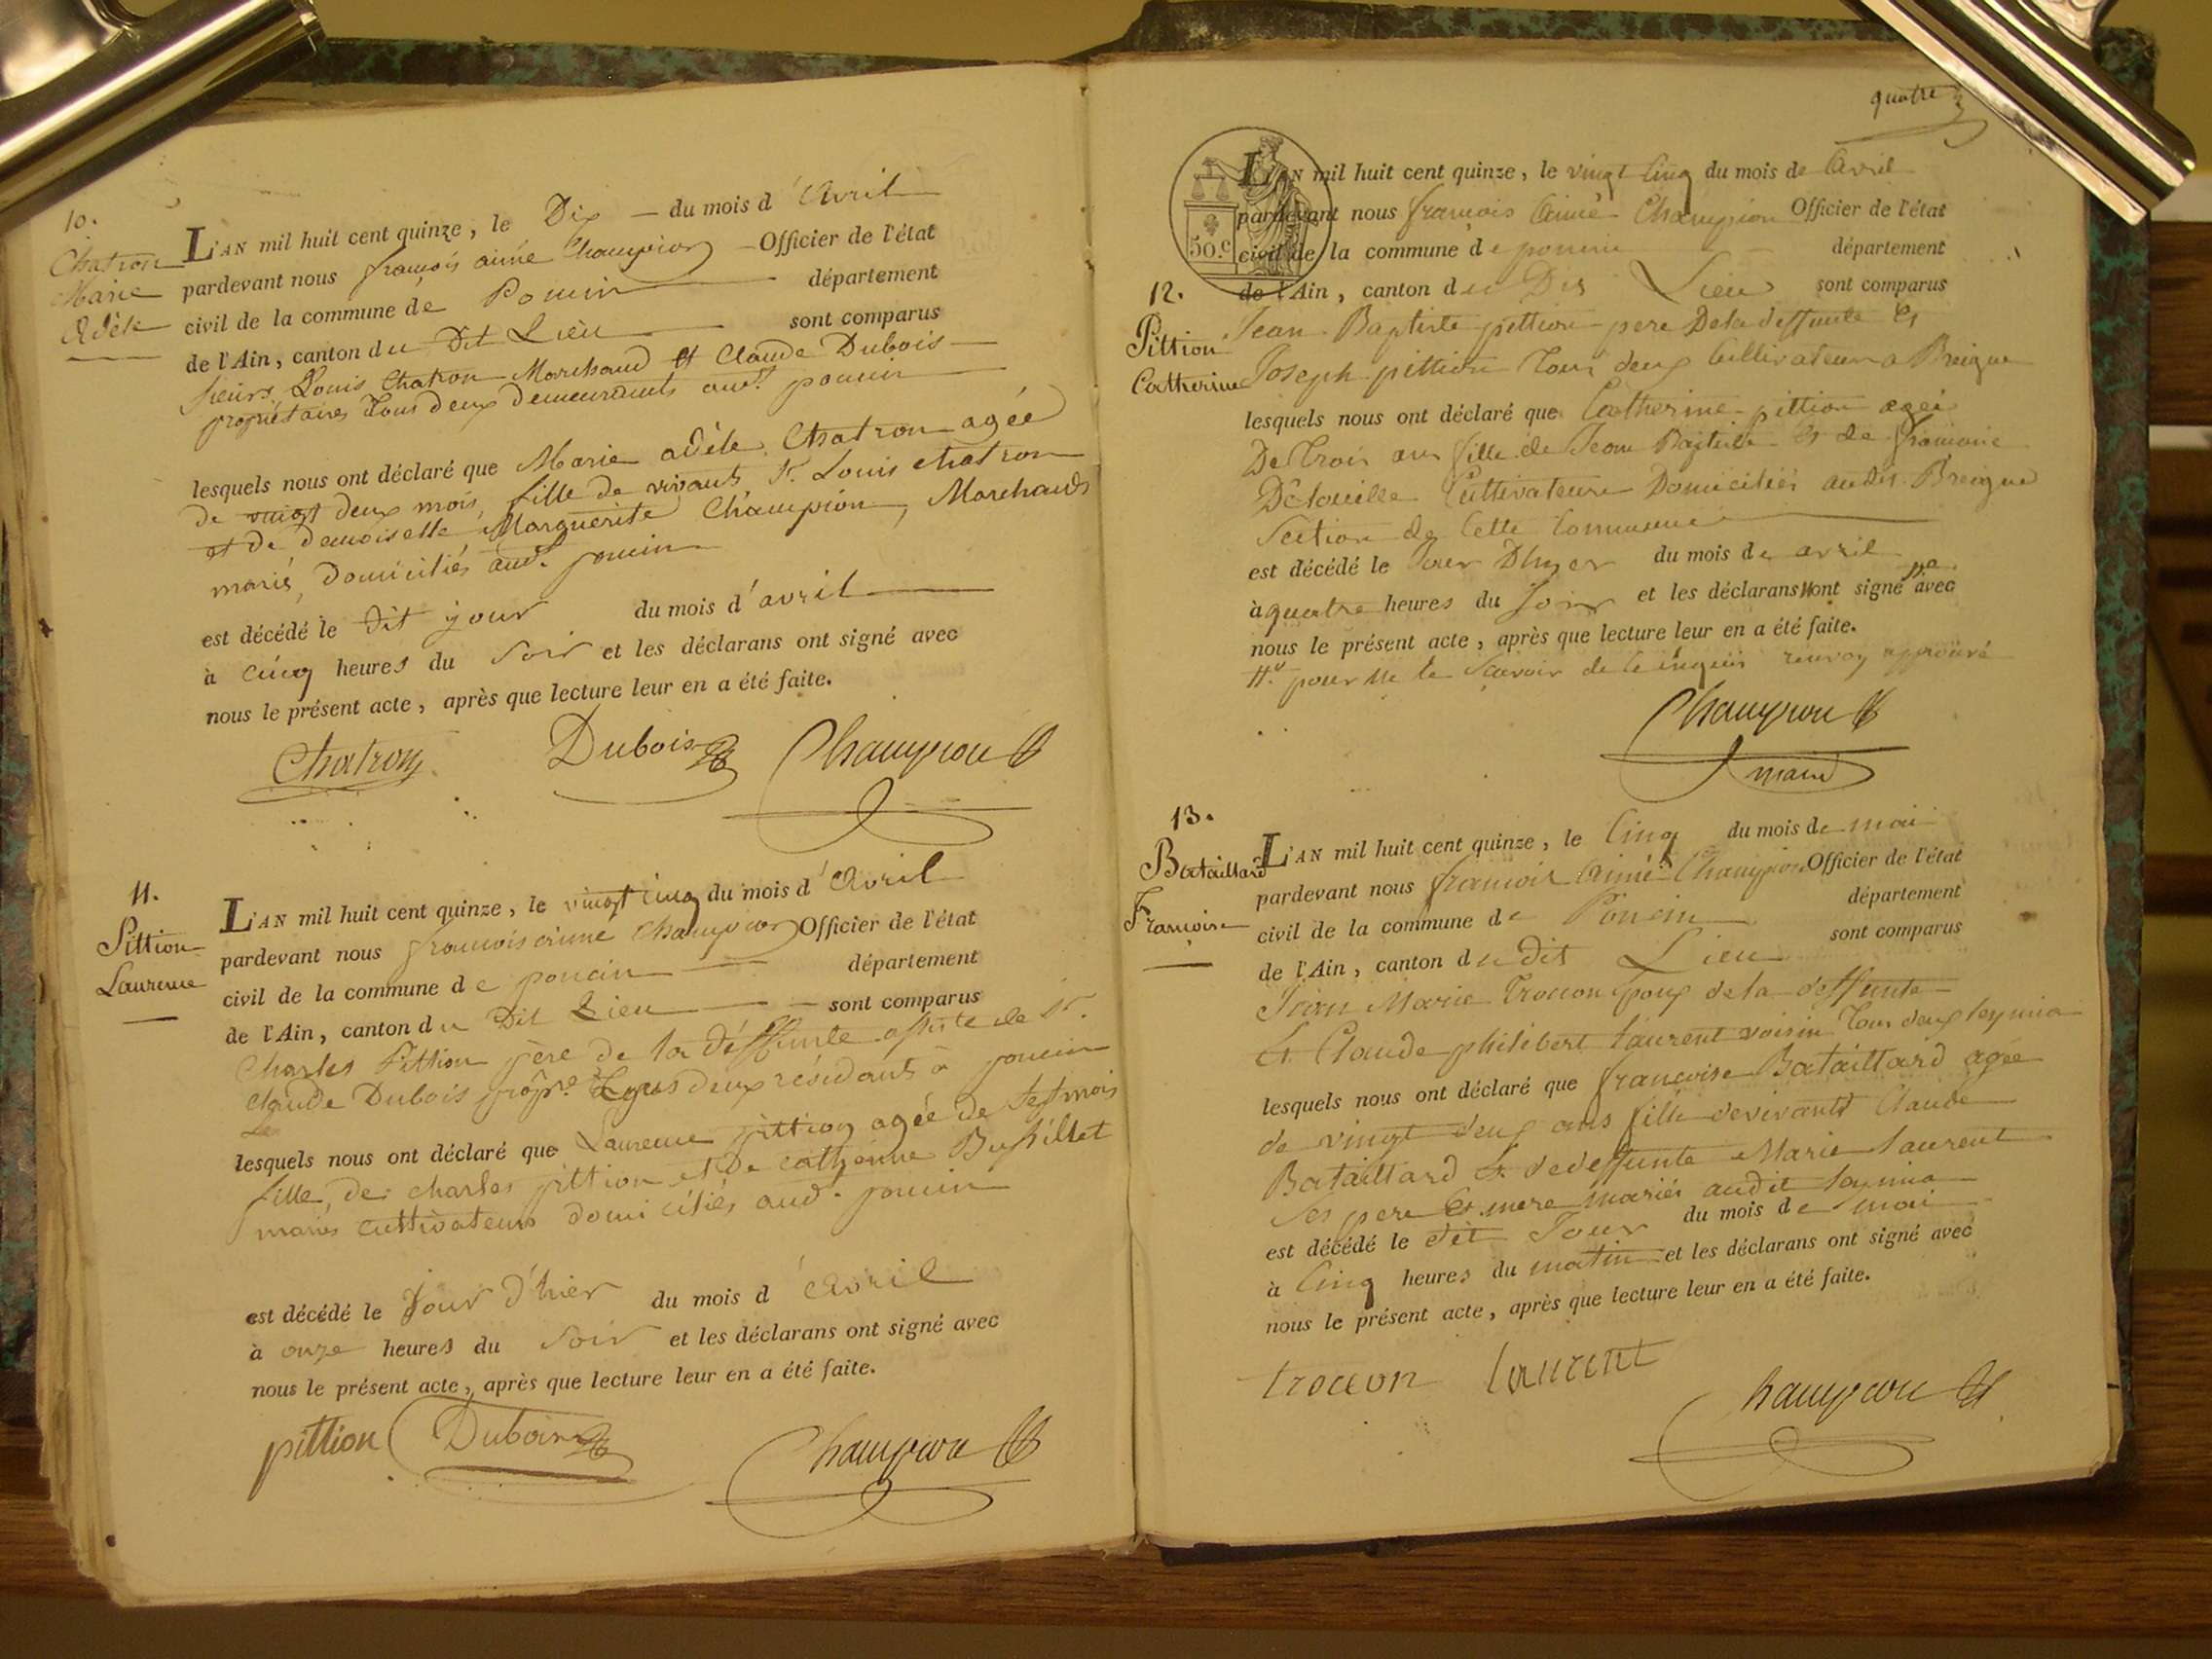 10.
Chatron
Marie
Adèle
L'AN mil huit cent quinze, le Dix du mois d'Avril
pardevant nous françois aimé Champion Officier de l'état
civil de la commune de Poncin département
de l'Ain, canton du Dit Lieu sont comparus
sieurs Louis Chatron Marchand et Claude Dubois
propriétaires tous deux demeurants aud.t poncin
lesquels nous ont déclaré que Marie adèle Chatron agée
de vingt deux mois, fille de vivants S.r Louis chatron
et de demoiselle Marguerite Champion, Marchands
mariés, domiciliés aud.t poncin
est décédé le dit jour du mois d'avril
à cinq heures du soir et les déclarans ont signé avec
nous le présent acte, après que lecture leur en a été faite.
Chatron Dubois Champion
11.
Pittion
Laurence
L'AN mil huit cent quinze, le vingt cinq du mois d'Avril
pardevant nous francois aime Champion Officier de l'état
civil de la commune de poncin département
de l'Ain, canton du Dit Lieu sont comparus
Charles Pittion père de la déffunte assisté de S.r
Claude Dubois prop.re Tous deux résidants à poncin
lesquels nous ont déclaré que Laurence pittion agée de sept mois
fille de charles pittion et de catherine Bussillet
mariés cultivateurs domiciliés aud.t poncin
est décédé le jour d'hier du mois d'Avril
à onze heures du soir et les déclarans ont signé avec
nous le présent acte, après que lecture leur en a été faite.
pittion Dubois Champion
quatre
50.c
12.
Pittion
Catherine
L'AN mil huit cent quinze, le vingt Cinq du mois de Avril
pardevant nous françois Aimé Champion Officier de l'état
civil de la commune de poncin département
de l'Ain, canton du Dit Lieu sont comparus
Jean Baptiste pittion pere De la deffunte Et
Joseph pittion Tous deux Cultivateurs a Breigne
lesquels nous ont déclaré que Catherine pittion agée
De Trois ans fille de Jean Baptiste Et de
Cultivateurs Domiciliés audit Breigne
Section de Cette Commune
est décédé le Jour D'hyer du mois de avril
à quatre heures du Soir et les déclarans n'ont signé avec
nous le présent acte, après que lecture leur en a été faite.
pour ne le Scavoir de ce enquis renvoy approuvé
Champion
maire
13.
Bataillard
Francoise
L'AN mil huit cent quinze, le Cinq du mois de mai
pardevant nous francois Aimé Champion Officier de l'état
civil de la commune de Poncin département
de l'Ain, canton du dit Lieu sont comparus
Jean Marie Trocon Epoux de la deffunte
Et Claude philibert Laurent voisin Tous deux leymia
lesquels nous ont déclaré que francoise Bataillard agée
de vingt deux ans fille devivants Claude
Bataillard Et dedeffunte Marie Laurent
Ses pere Et mere mariés audit leymia
est décédé le dit Jour du mois de mai
à Cinq heures du matin et les déclarans ont signé avec
nous le présent acte, après que lecture leur en a été faite.
trocon laurent
Champion